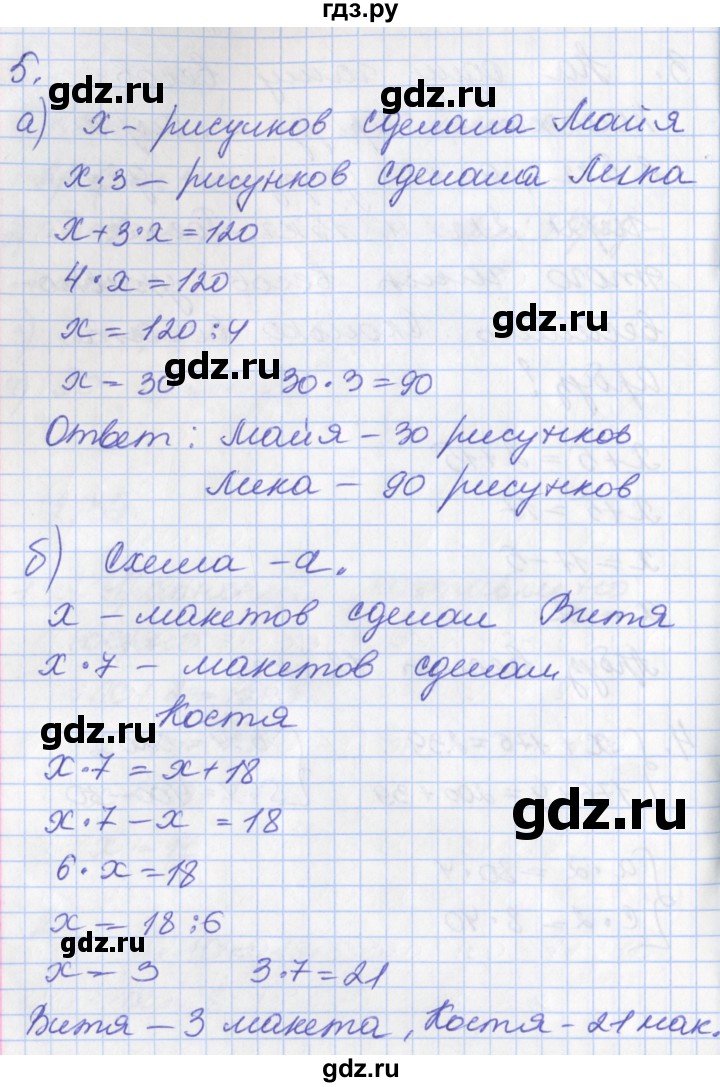 гдз.ру
5.
gdz.ru
gdz.ru
а) х - рисунков сделала Майя
х·3 - рисунков сделала Лика
х+3·х=120
4·х=120
gdz.ru
х=120:4
gdz.ru
х=30 30·3=90
Ответ: Майя - 30 рисунков
Лика - 90 рисунков
б) Схема - а.
х - макетов сделал Витя
х·7 - макетов сделал
Костя
gdz.ru
х·7=х+18
gdz.ru
х·7-х=18
6·х=18
х=18:6
gdz.ru
х=3 3·7=21
Витя - 3 макета, Костя - 21 мак.
gdz.ru